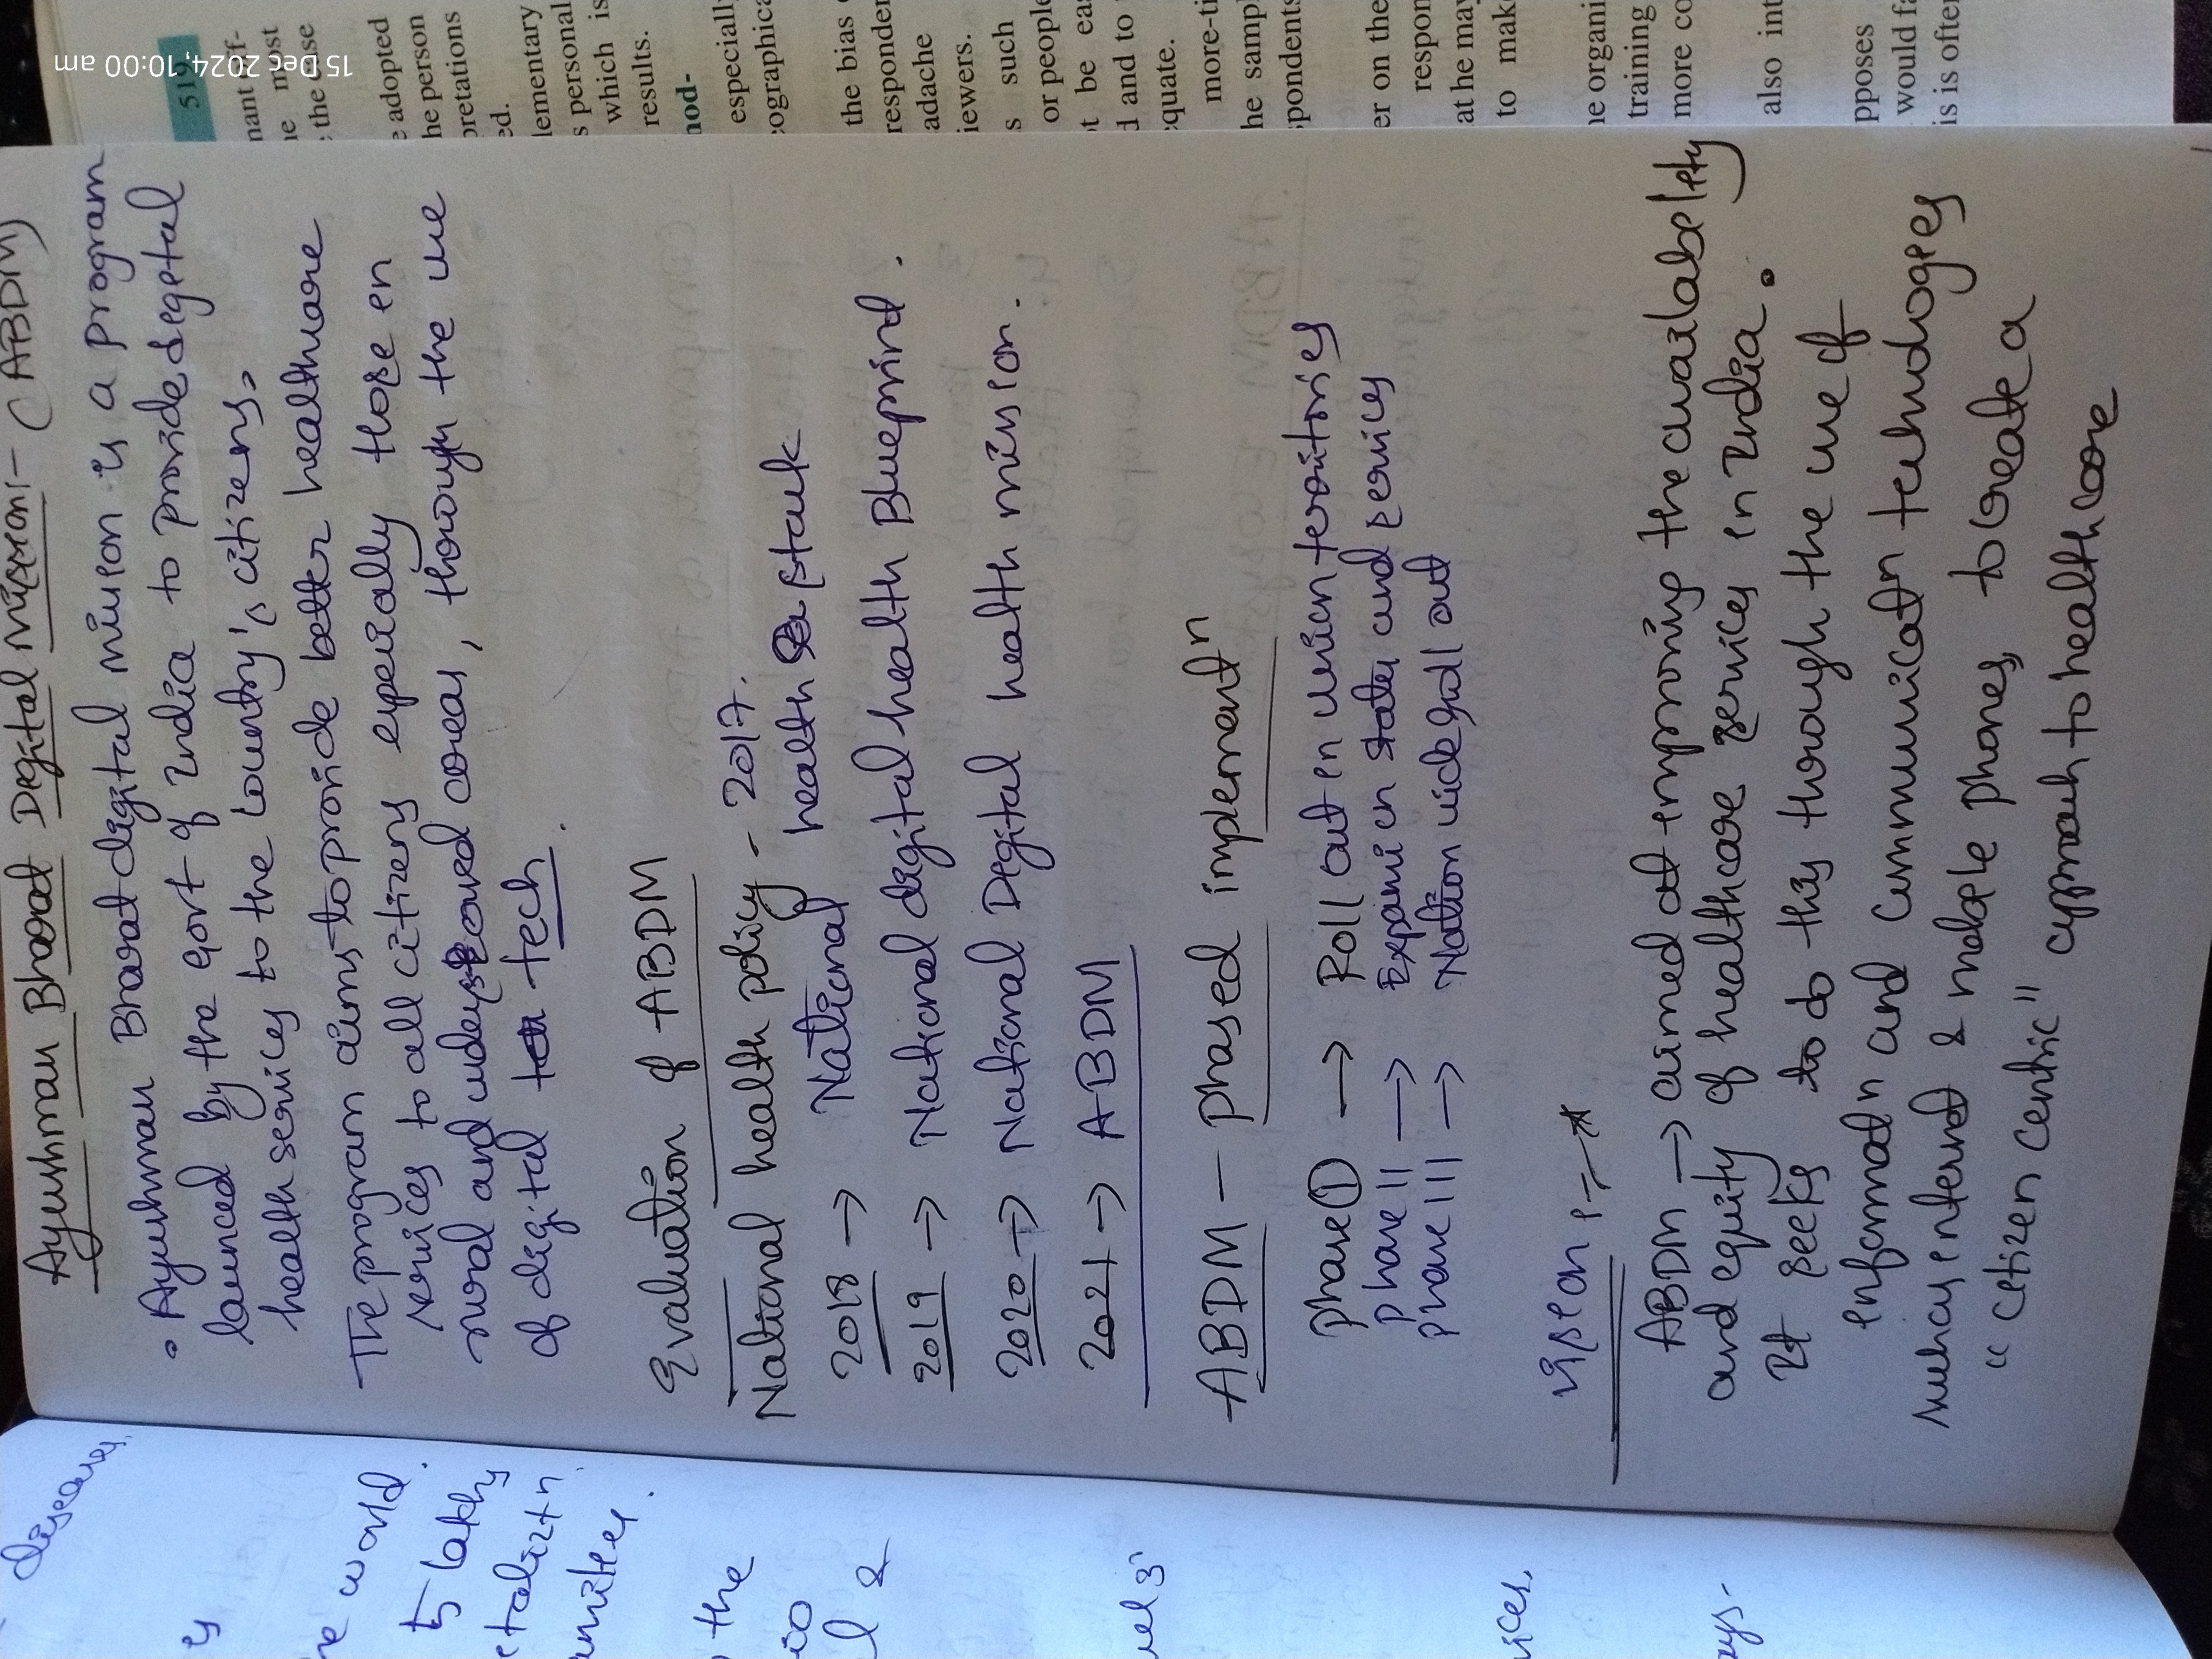 Ayushman Bharat Digital Mission:- (ABDM)
• Ayushman Bharat digital mission is a program
launced by the govt of India to provide degetal
health services to the country's citizens.
The program aims to provide better healthcare
services to all citizens especially those en
rural and underserved areas, through the use
of digital tech.
Evaluation of ABDM
National health policy - 2017.
2018 → National health stack
2019 → National digital health Blueprind.
2020 → National Digital health mission.
2021 → ABDM
ABDM - Phased implementn
phase ① → Roll out en union territories
phase II → Expansi in states and services
phase III → Nation wide roll out
Vision :-
ABDM → aimed at improving the availabelety
and equity of healthcare services in India.
It seeks to do this through the use of
informatn and communicatn technologes
such as internet & mobele phones, to create a
"cetizen centric" approach to healthcare
diseases,
ty
he world
5 lakhs.
etalizatn
amilies.
the
l &
vices,
ays.
519
e adopted
he person
pretations
ed.
lementary
s personal
which is
results.
nod-
especiall
eographica
the bias
responden
adache
iewers.
s such
or people
t be eas
d and to
equate.
more-ti
he sampl
pondents
er on the
respon
at he may
to mak
ne organi
training
more co
also int
pposes
would fa
is is often
15 Dec 2024, 10:00 am